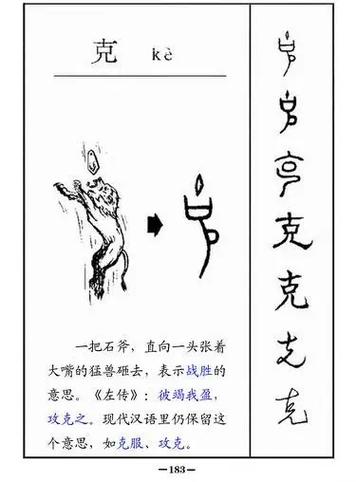 克 kè
一把石斧，直向一头张着
大嘴的猛兽砸去，表示战胜的
意思。《左传》：彼竭我盈，
攻克之。现代汉语里仍保留这
个意思，如克服、攻克。
克
克
克
克
—183—